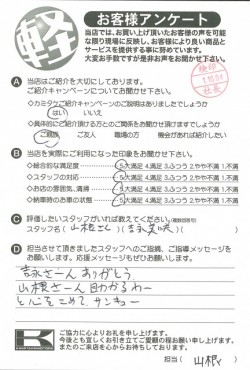 軽
お客様アンケート
当店では、お買い上げ頂いたお客様の声を可能
な限り現場に反映し、お客様により良い商品と
サービスを提供する事に努めています。
大変お手数ですが是非お声をお聞かせ下さい。
検印
社長
A 当店はご紹介を大切にしております。
ご紹介キャンペーンについてお聞かせ下さい。
◇カミタケご紹介キャンペーンのご説明はありましたでしょうか
はい いいえ
◇具体的にご紹介頂ける方とのご関係をお聞かせ頂けますでしょうか
ご親族 ご友人 職場の方 機会があれば紹介したい
B 当店を実際にご利用になった印象をお聞かせ下さい。
◇総合的な満足度 5.大満足 4.満足 3.ふつう 2.やや不満 1.不満
◇スタッフの対応 5.大満足 4.満足 3.ふつう 2.やや不満 1.不満
◇お店の雰囲気、清掃 5.大満足 4.満足 3.ふつう 2.やや不満 1.不満
◇納車時のお車の状態 5.大満足 4.満足 3.ふつう 2.やや不満 1.不満
C 評価したいスタッフがいれば教えてください。(複数回答可)
スタッフ名 ( 山根さん ) (
D 担当させて頂きましたスタッフへのご感想、ご指導メッセージを
お願いします。応援メッセージもぜひお願いします。
吉永さーん ありがとう
山根さーん 助かるわー
と心をこめて サンキュー
K
ご協力に心よりお礼を申し上げます。
今後とも宜しくお引き立てご愛顧の程お願い申し上げます。
またのご来店を心からお待ちしております。
担当 ( 山根 )